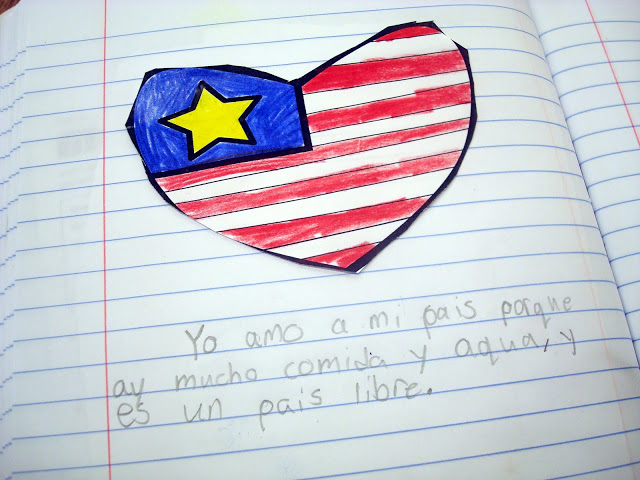 Yo amo a mi pais porque
ay mucho comida y aqua, y
es un pais libre.